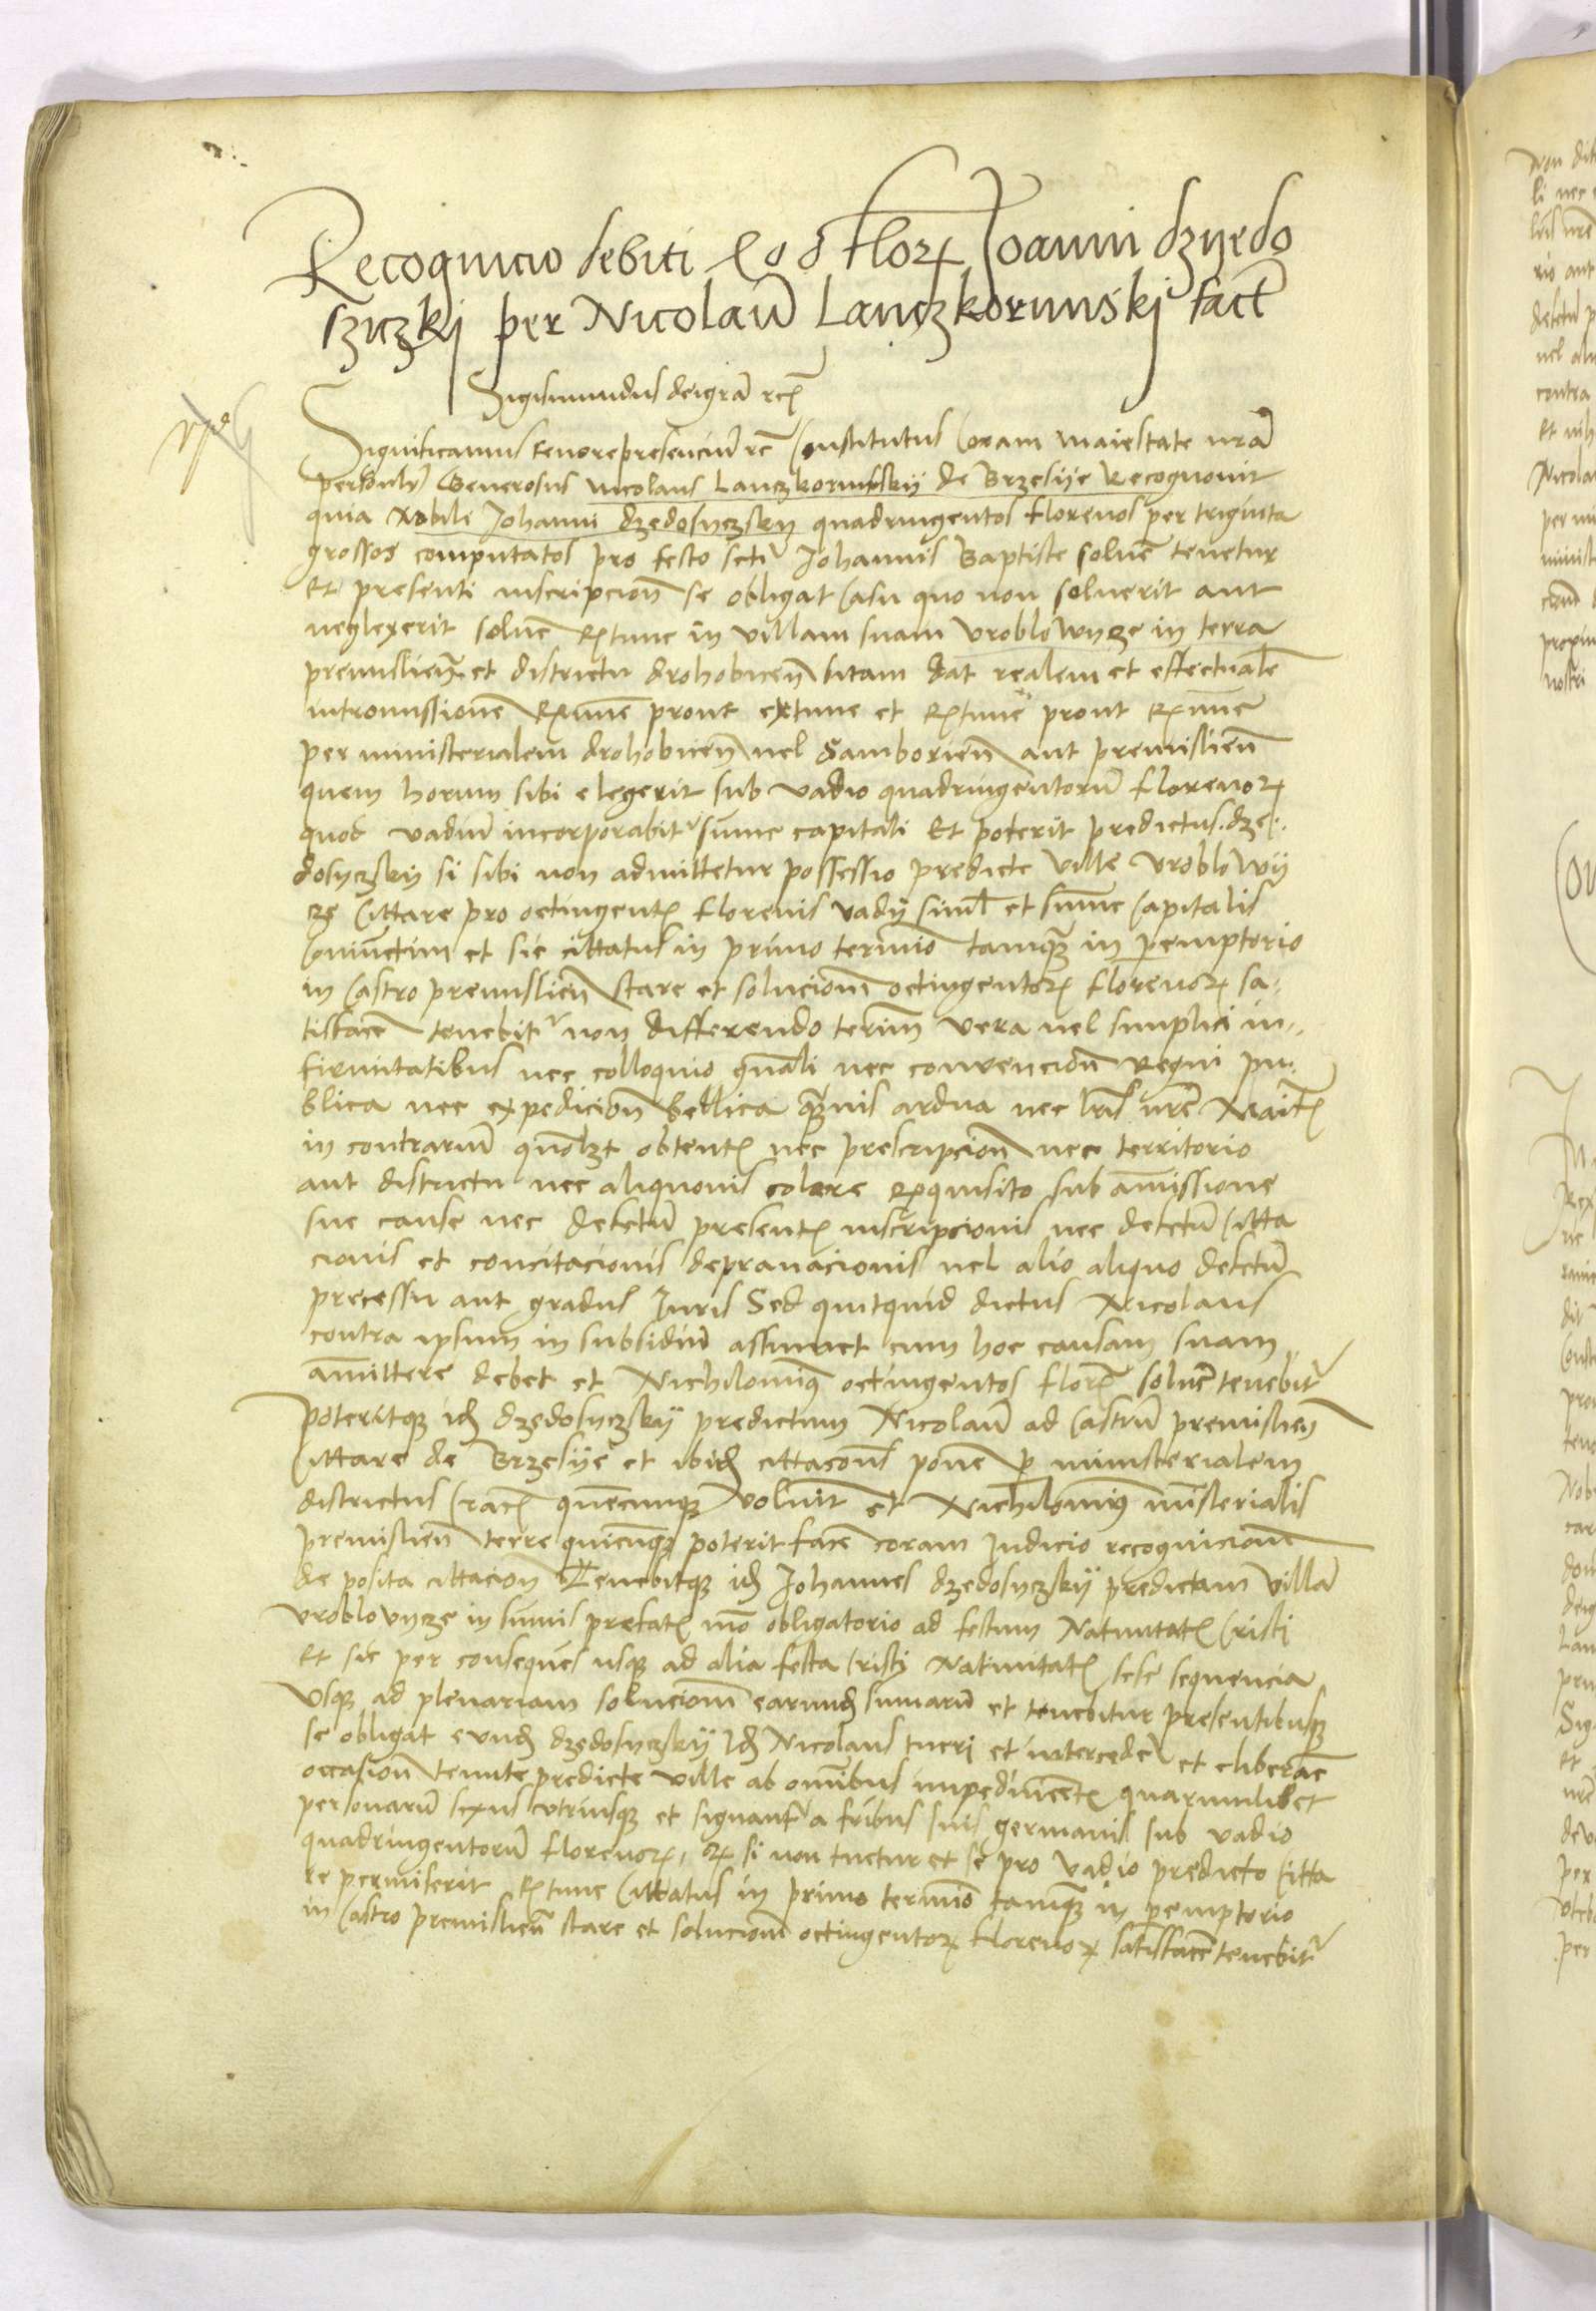 Recognicio debiti 400 Flor Joanni dzyedo
sziczkij per Nicolaum Lanczkorunskij fact
Sigismundus dei gra etc
Significamus tenore presencium etc Constitutus Coram Maiestate nra
personlr Generosus Nicolaus Lanczkorunskij de Brzesije Recognouit
quia Nobili Johanni dzedosyczsky quadringentos florenos per triginta
grossos computatos pro festo scti Johannis Baptiste soluere tenetur
Et presenti inscripcion se obligat Casu quo non soluerit aut
neglexerit soluere Extunc in villam suam Vroblowycze in terra
premislien et districtu drohobicen sitam dat realem et effectualem
intromissionem Exnunc prout extunc et Extunc prout Exnunc
per ministerialem drohobicen vel Samborien aut premislien
quem horum sibi elegerit sub vadio quadringentorum florenor
quod vadium incorporabitr summe capitali Et poterit predictus dze
dosyczskij si sibi non admittetur possessio predicte ville Vroblowij
cze Cittare pro octingent florenis vadij siml et summe Capitalis
Coniunctim et sic cittatus in primo termino tamquam in peremptorio
in Castro premislien stare et solucionem octingentor florenor sa
tisfacere tenebitr non differendo terminum vera vel simplici in
firmitatibus nec colloquio gnali nec convencion Regni pu
blica nec expedicion bellica quamuis ardua nec lris nre Maiet
in contrarium quomolzt obtent nec prescripcion nec territorio
aut districtu nec aliquouis colore Exquisito sub amissione
sue cause nec defectum present inscripcionis nec defectum Citta
cionis et concitacionis depravacionis vel alio aliquo defectum
processu aut gradus Juris Sed quitquid dictus Nicolaus
contra ipsum in subsidium assumet cum hoc causam suam
amittere debet et Nichilominus octingentos floren soluere tenebitr
Poteritque idem dzedosyczskij predictum Nicolaum ad Castrum premislien
Cittare de Brzesije et ibidem cittacionem ponere per ministerialem
districtus Crac quemcunque voluerit et Nichilominus ministerialis
premislien terre quicunque poterit facere coram Judicio recognicionem
de posita cittacion Tenebitque idem Johannes dzedosyczskij predictam villam
Vroblovycze in summis prefat modo obligatorio ad festum Natiuitat Cristi
Et sic per consequens usque ad alia festa Cristi Natiuitat sese sequencia
Usque ad plenariam solucionem earundem summarum et tenebitur presentibusque
se obligat eundem dzedosyczskij Idem Nicolaus tueri et intercedere et eliberare
occasion tenute predicte ville ab omnibus impediment quarumlibet
personarum sexus utriusque et signanter a fribus suis germanis sub vadio
quadringentorum florenor, Et si non tuetur et se pro vadio predicto Citta
re permiserit Extunc Cittatus in primo termino tamquam in peremptorio
in Castro premislien stare et solucionem octingentor florenor satisfacere tenebitr